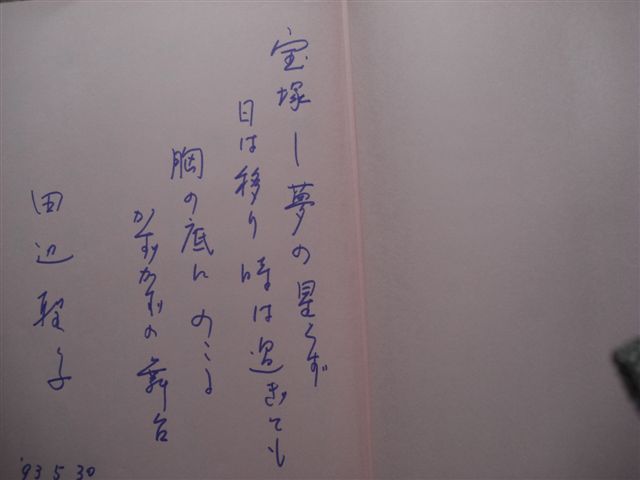 宝塚ー夢の星くず
日は移り 時は過ぎても
胸の底に のこる
かずかずの舞台
田辺聖子
'93 5 30